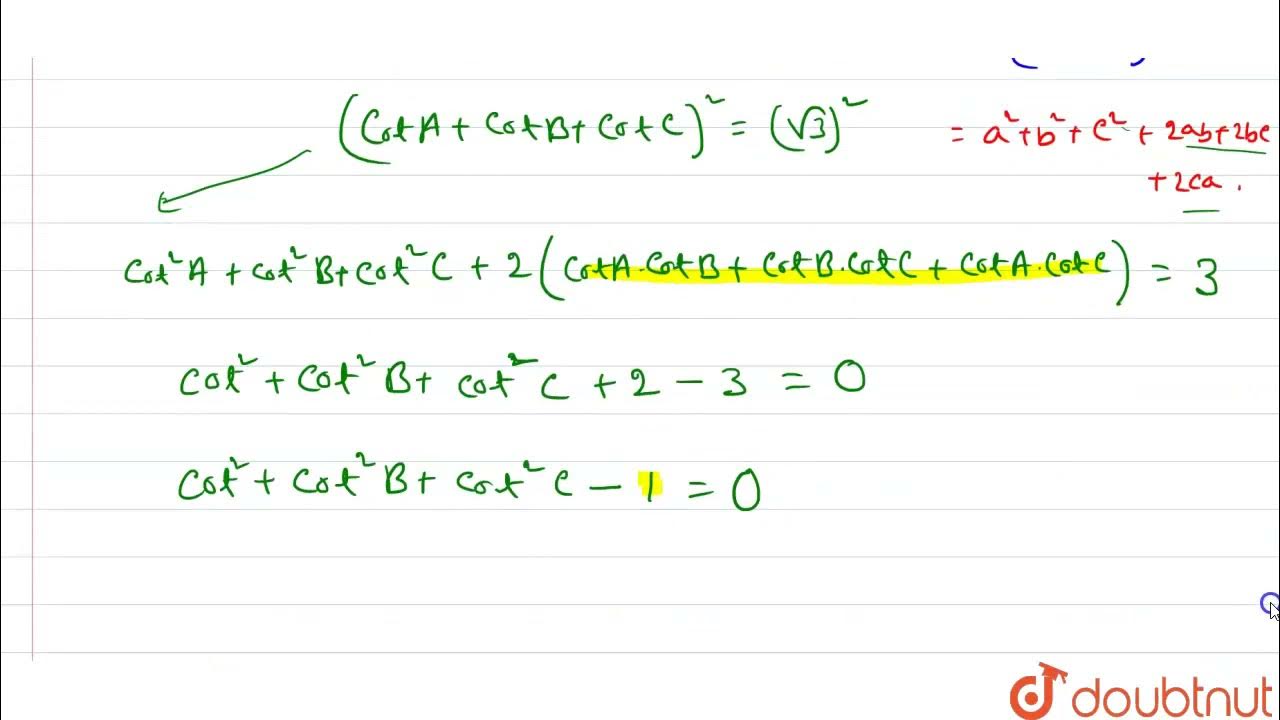 (Cot A + Cot B + Cot C)² = (√3)²
= a² + b² + c² + 2ab + 2bc
+ 2ca .
Cot² A + Cot² B + Cot² C + 2 (Cot A . Cot B + Cot B . Cot C + Cot A . Cot C) = 3
Cot² + Cot² B + Cot² C + 2 - 3 = 0
Cot² + Cot² B + Cot² C - 1 = 0
doubtnut